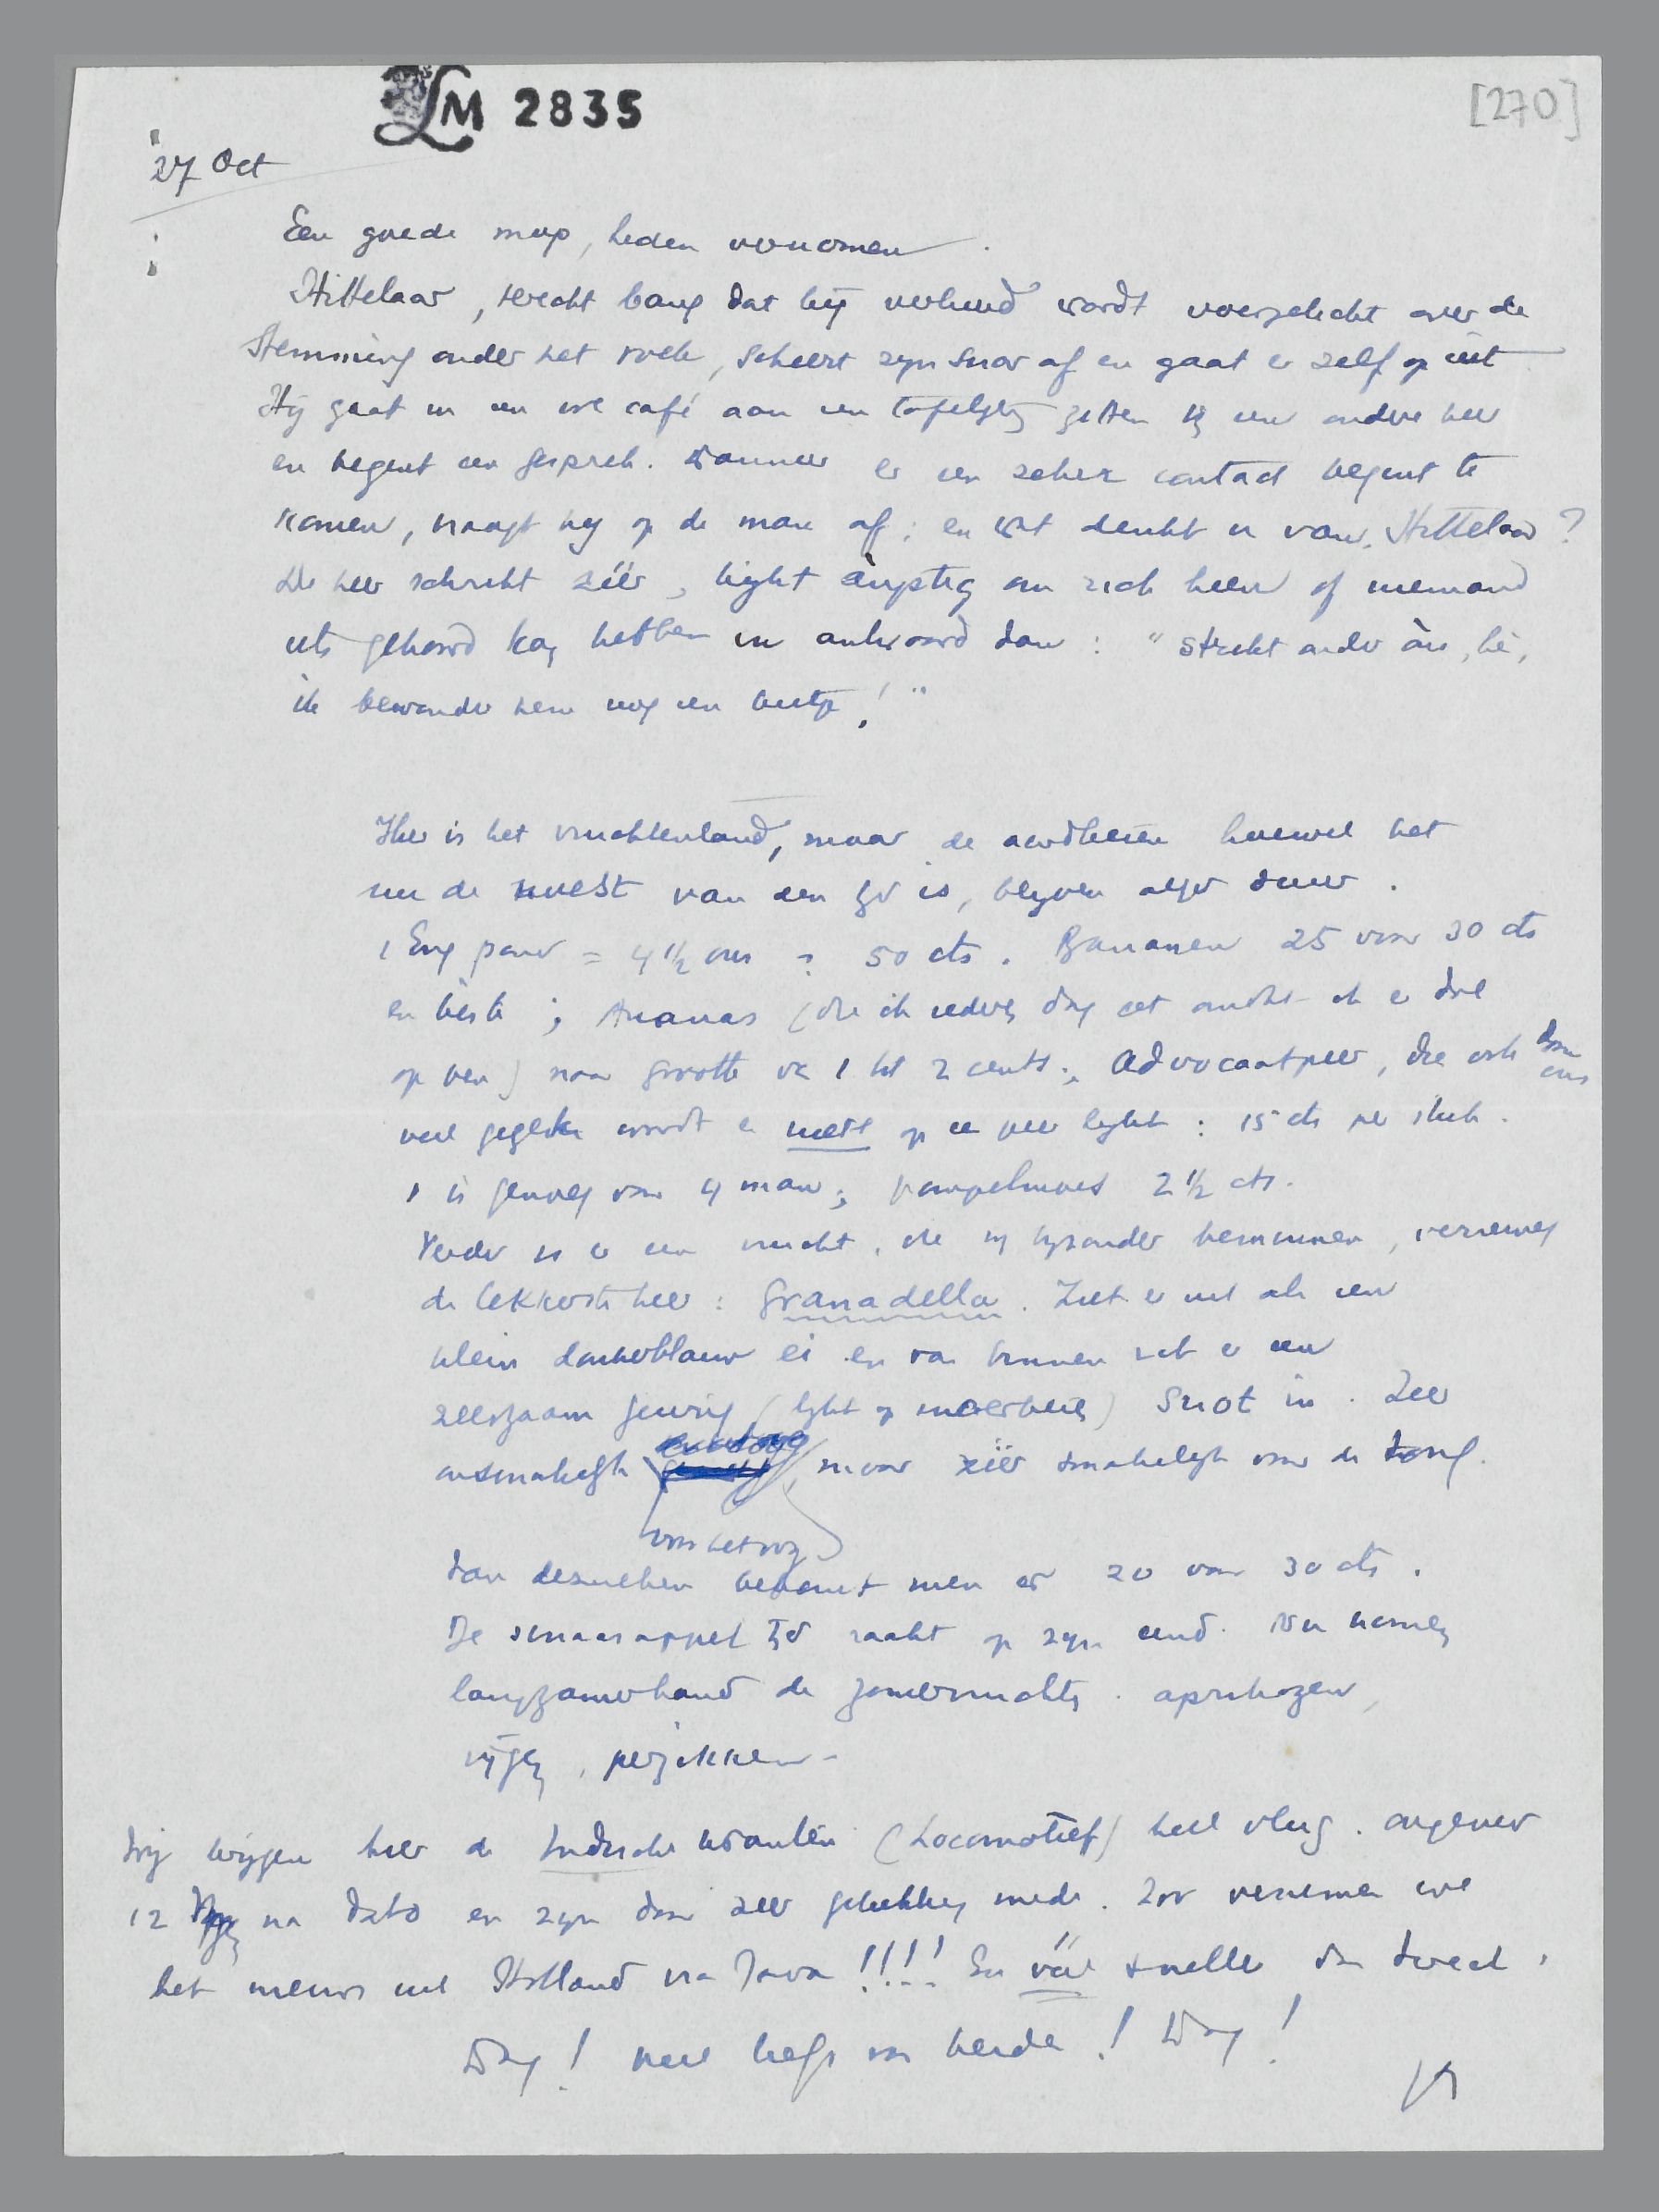 LM 2835
[270]
27 Oct
Een goede mop, heden vernomen.
Hittelaar, terecht bang dat hij verkeerd wordt voorgelicht over de
Stemming onder het volk, scheert zijn snor af en gaat er zelf op uit
Hij gaat in een café aan een tafeltje zitten bij een andere heer
en begint een gesprek. Wanneer er een zeker contact begint te
komen, vraagt hij op de man af: en wat denkt u van Hittelaar?
De heer schrikt zéér, kijkt angstig om zich heen of niemand
iets gehoord kan hebben en antwoord dan: "strikt onder ons, hè,
ik bewonder hem nog een beetje!"
Hier is het vruchtenland, maar de aardbeien hoewel het
nu de oogst van den tijd is, blijven altijd duur.
1 Eng pond = 4 1/2 ons = 50 cts. Bananen 25 voor 30 cts
en beste; Ananas (die ik iedere dag eet omdat ik er dol
op ben) naar grootte van 1 tot 2 cents; Advocaatpeer, die ook door ons
veel gegeten wordt en niets op een peer lijkt: 15 cts per stuk.
1 is genoeg voor 4 man; pompelmoes 2 1/2 cts.
Verder is er een vrucht, die wij bijzonder beminnen, verreweg
de lekkerste hier: Granadella. Ziet er uit als een
klein donkerblauw ei en van binnen zit er een
zeldzaam geurig (lijkt op moerbei) snot in. Zeer
onsmakelijk voor het oog, maar zéér smakelijk voor de tong.
Van dezulken bekomt men er 20 voor 30 cts.
De sinaasappel tijd raakt op zijn eind. Nu komen
langzamerhand de zomervruchten. aprikozen,
vijgen, perziken -
Wij krijgen hier de Indische kranten (Locomotief) heel vlug. ongeveer
12 dagen na dato en zijn daar zeer gelukkig mede. Zoo vernemen we
het nieuws uit Holland via Java!!!! En véél sneller dan direct.
Dag! veel liefs van beide! Dag!